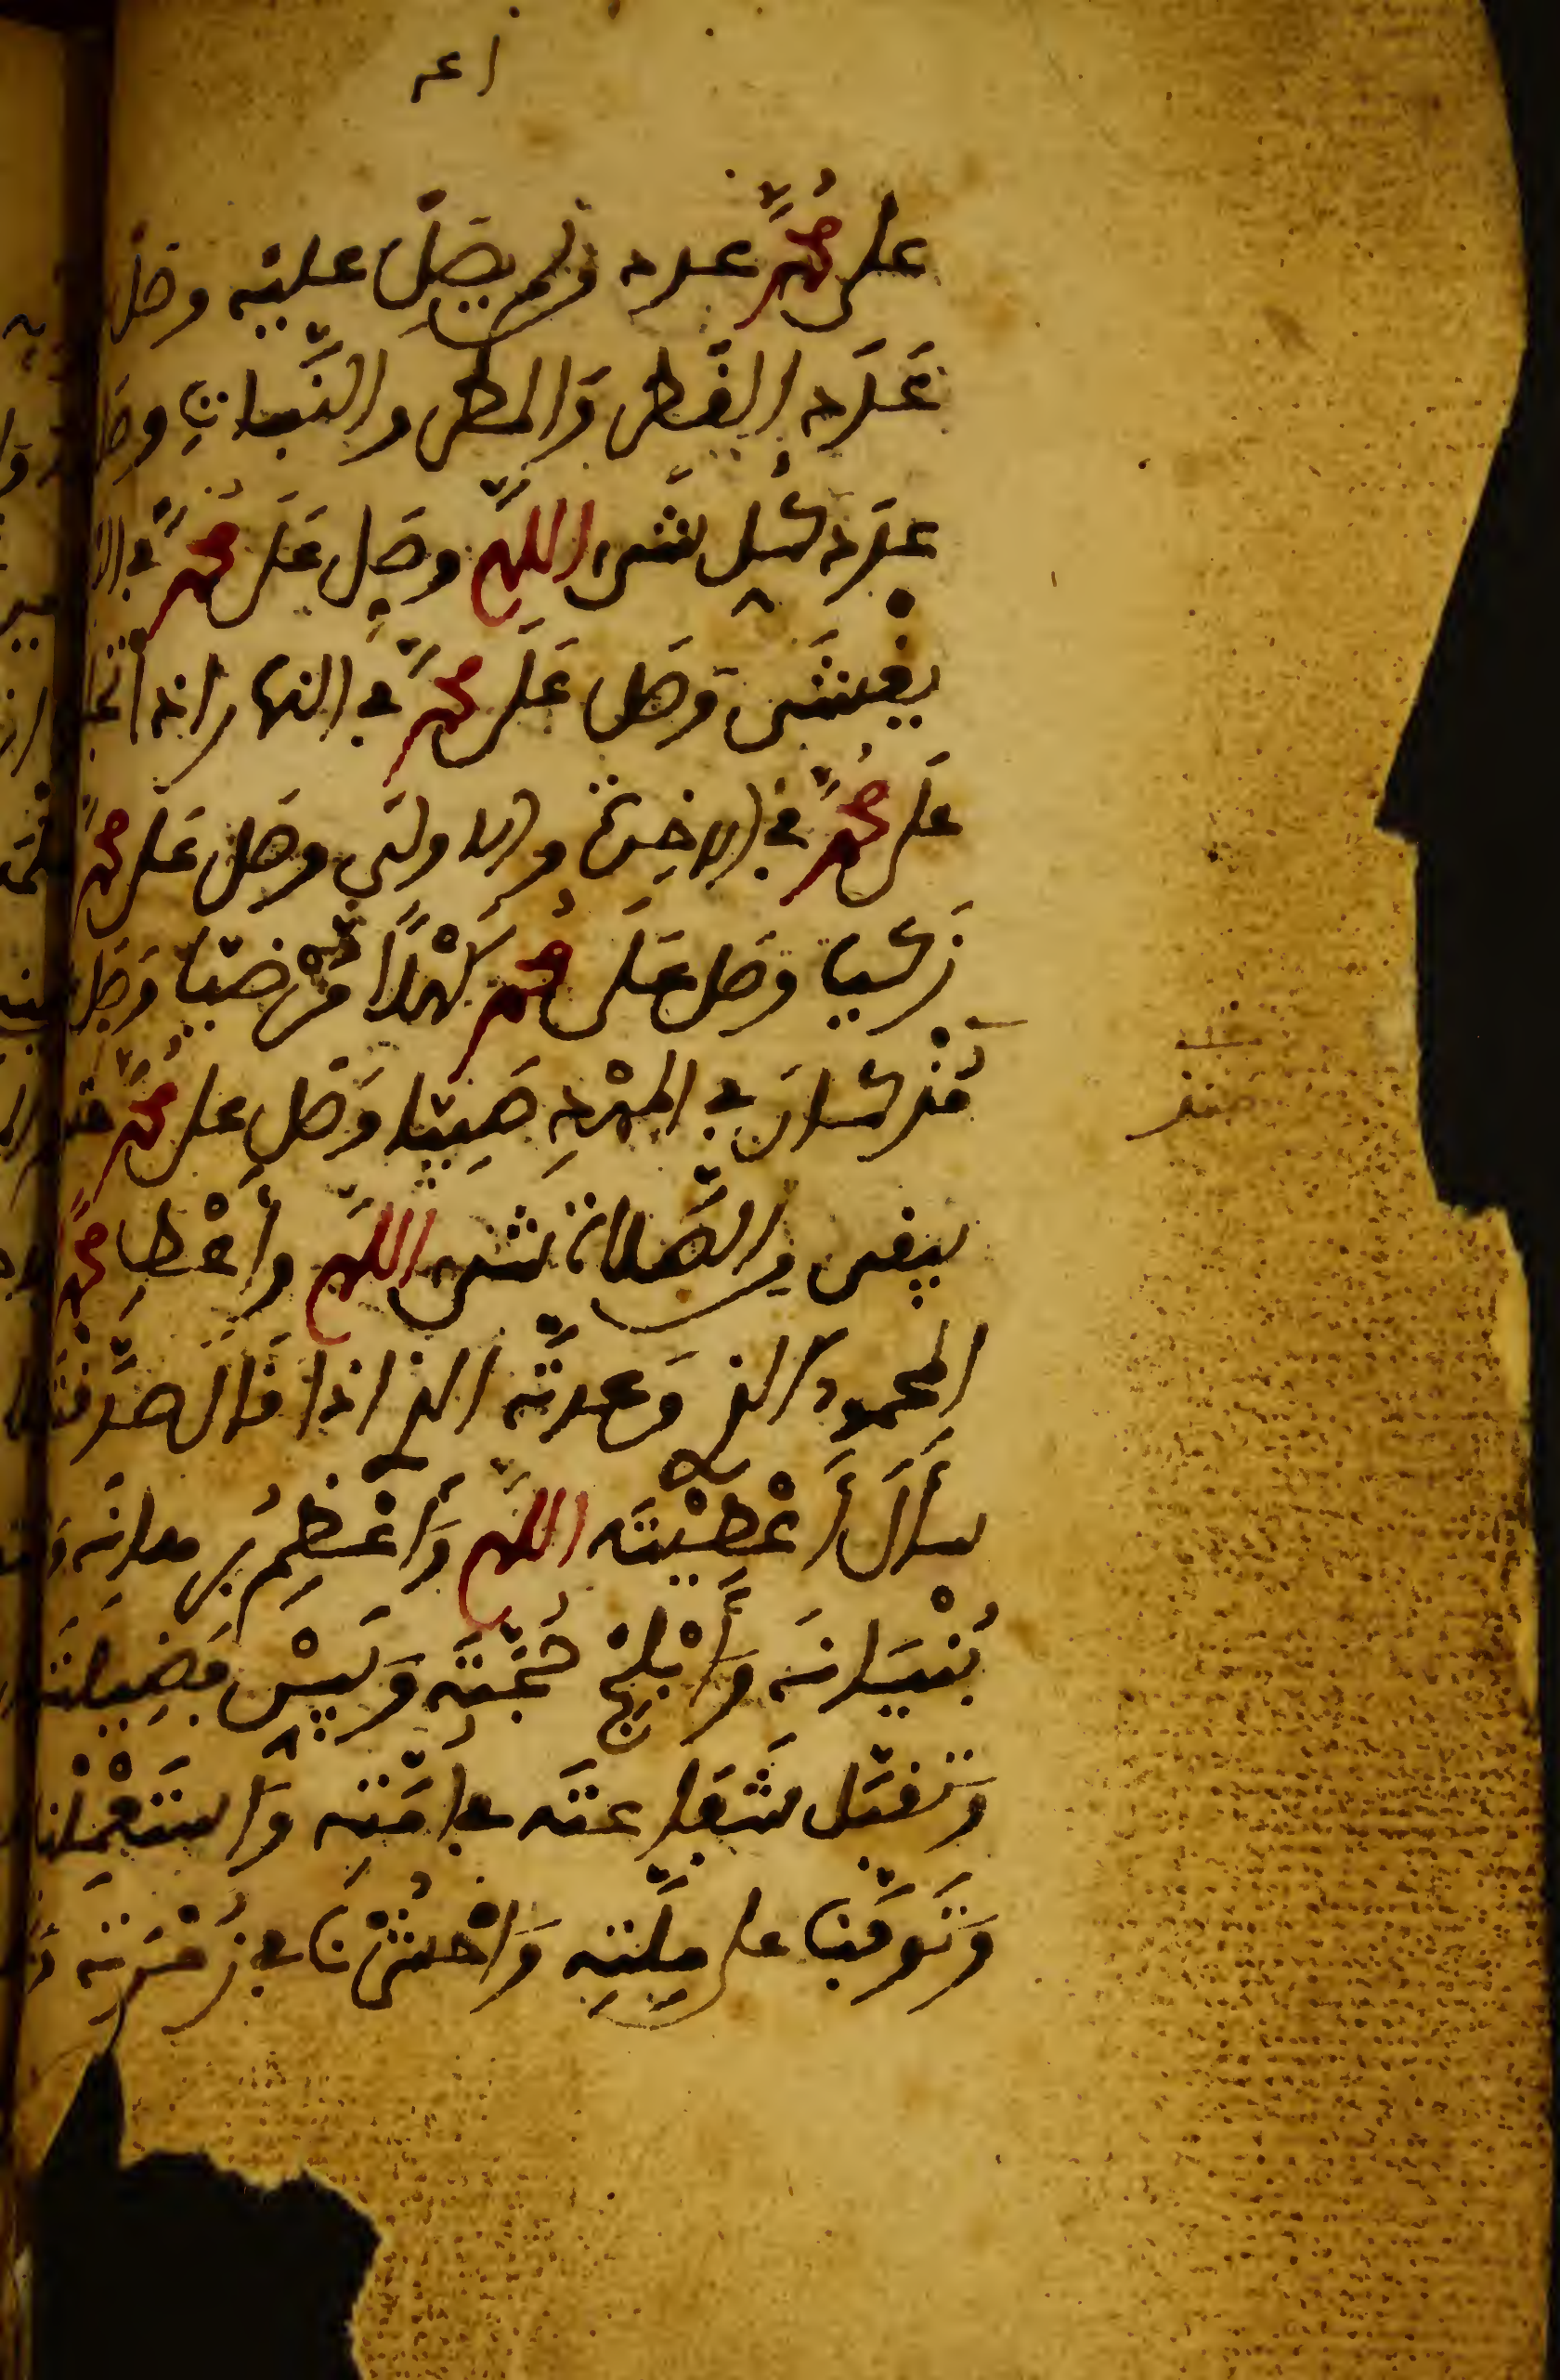 على محمد عدد ولم يصل عليه وصل
عَدَدِ القطر وَالمطر والنَّباتِ وصل
عدَد كُل شىء اللهم وصَلِ عَلَى مُحمدٍ في
يغشَى وَصل عَلَى محمدٍ في النهار اذا
عَلَى مُحمدٍ في الاخِرة والاولَى وصَل عَلَى محمدٍ
زَكيا وصَل عَلَى مُحمد كَهْلًا مَرْضيّا وَصَل
مُنْذ كَانَ في المَهْدِ صَبِيّا وَصَلِ على مُحمَّد
يبقى والصَّلاة شىء اللهم وأعْطِ محمدًا
المحمود الذي وَعدتَّه الذي اذا قَالَ صَدَّقته
سأَلَ أَعْطَيْتَه اللهم وَأَعْظِمْ برهانَه
بُنْيَانَه وَأَبْلِجْ حُجَّتَه وَبَيِّنْ فضِيلتَه
وَتَقبَّل شَفَاعتَه في امَّتِه وَاستَعْمِلْنا
وَتَوَفَّنا على مِلَّتِه وَاحْشُرْنَا في زُمْرَتِه